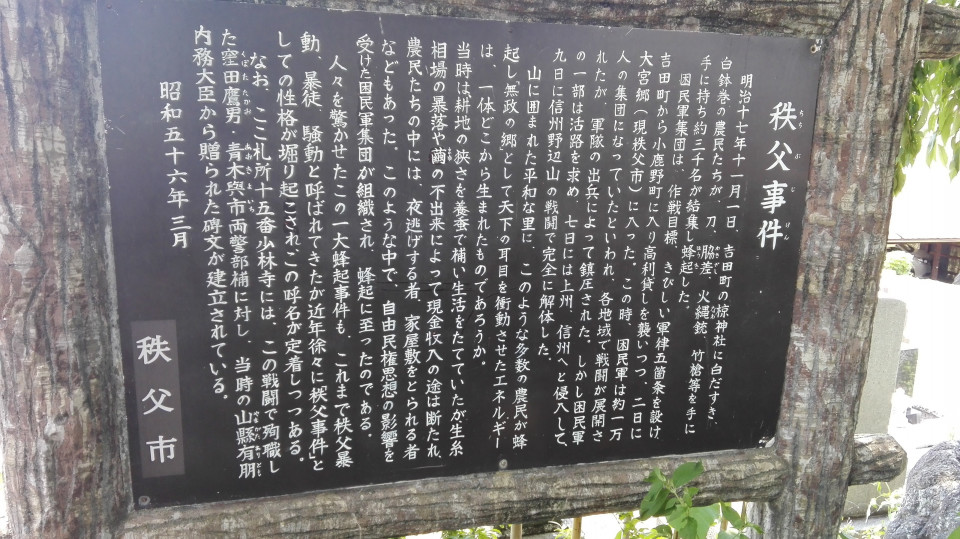 秩父事件
ちちぶじけん
明治十七年十一月一日、吉田町の椋神社に白だすき、
白鉢巻の農民たちが、刀、脇差、火縄銃、竹槍等を手に
手に持ち約三千名が結集し蜂起した。
困民軍集団は、作戦目標、きびしい軍律五箇条を設け
吉田町から小鹿野町に入り高利貸しを襲いつつ、二日に
大宮郷(現秩父市)に入った。この時、困民軍は約一万
人の集団になっていたといわれ、各地域で戦闘が展開さ
れたが、軍隊の出兵によって鎮圧された。しかし困民軍
の一部は活路を求め、七日には上州、信州へと侵入して、
九日に信州野辺山の戦闘で完全に解体した。
山に囲まれた平和な里に、このような多数の農民が蜂
起し無政の郷として天下の耳目を衝動させたエネルギー
は、一体どこから生まれたものであろうか。
当時は耕地の狭さを養蚕で補い生活をたてていたが生糸
相場の暴落や繭の不出来によって現金収入の途は断たれ、
農民たちの中には、夜逃げする者、家屋敷をとられる者
などもあった。このような中で、自由民権思想の影響を
受けた困民軍集団が組織され、蜂起に至ったのである。
人々を驚かせたこの一大蜂起事件も、これまで秩父暴
動、暴徒、騒動と呼ばれてきたが近年徐々に「秩父事件」と
しての性格が堀り起こされ、この呼名が定着しつつある。
なお、ここ札所十五番少林寺には、この戦闘で殉職し
た窪田鷹男・青木與市両警部補に対し、当時の山縣有朋
内務大臣から贈られた碑文が建立されている。
昭和五十六年三月
秩父市